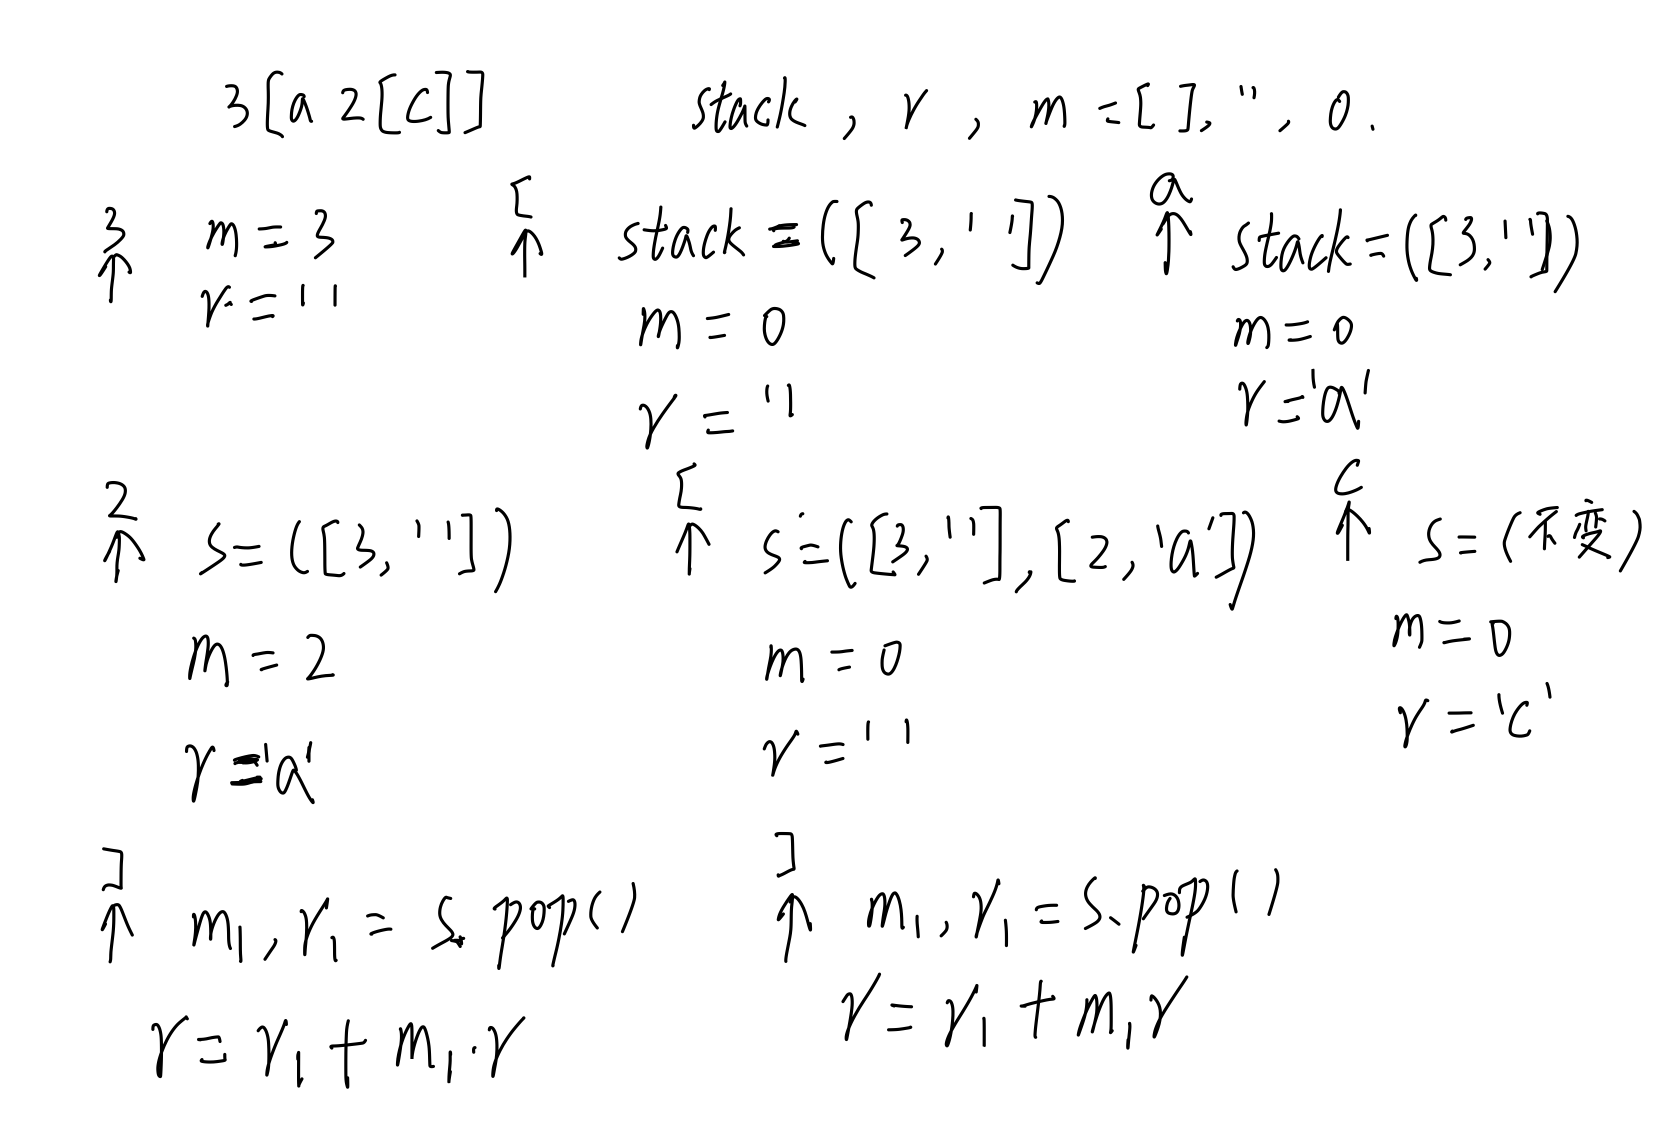 3[a2[c]]
stack, r, m=[], '', 0.
3
↑
m=3
r=''
[
↑
stack=([3,''])
m=0
r=''
a
↑
stack=([3,''])
m=0
r='a'
2
↑
s=([3,''])
m=2
r='a'
[
↑
s=([3,''],[2,'a'])
m=0
r=''
c
↑
s=(不变)
m=0
r='c'
]
↑
m₁,r₁=s.pop()
r=r₁+m₁·r
]
↑
m₁,r₁=s.pop()
r=r₁+m₁r